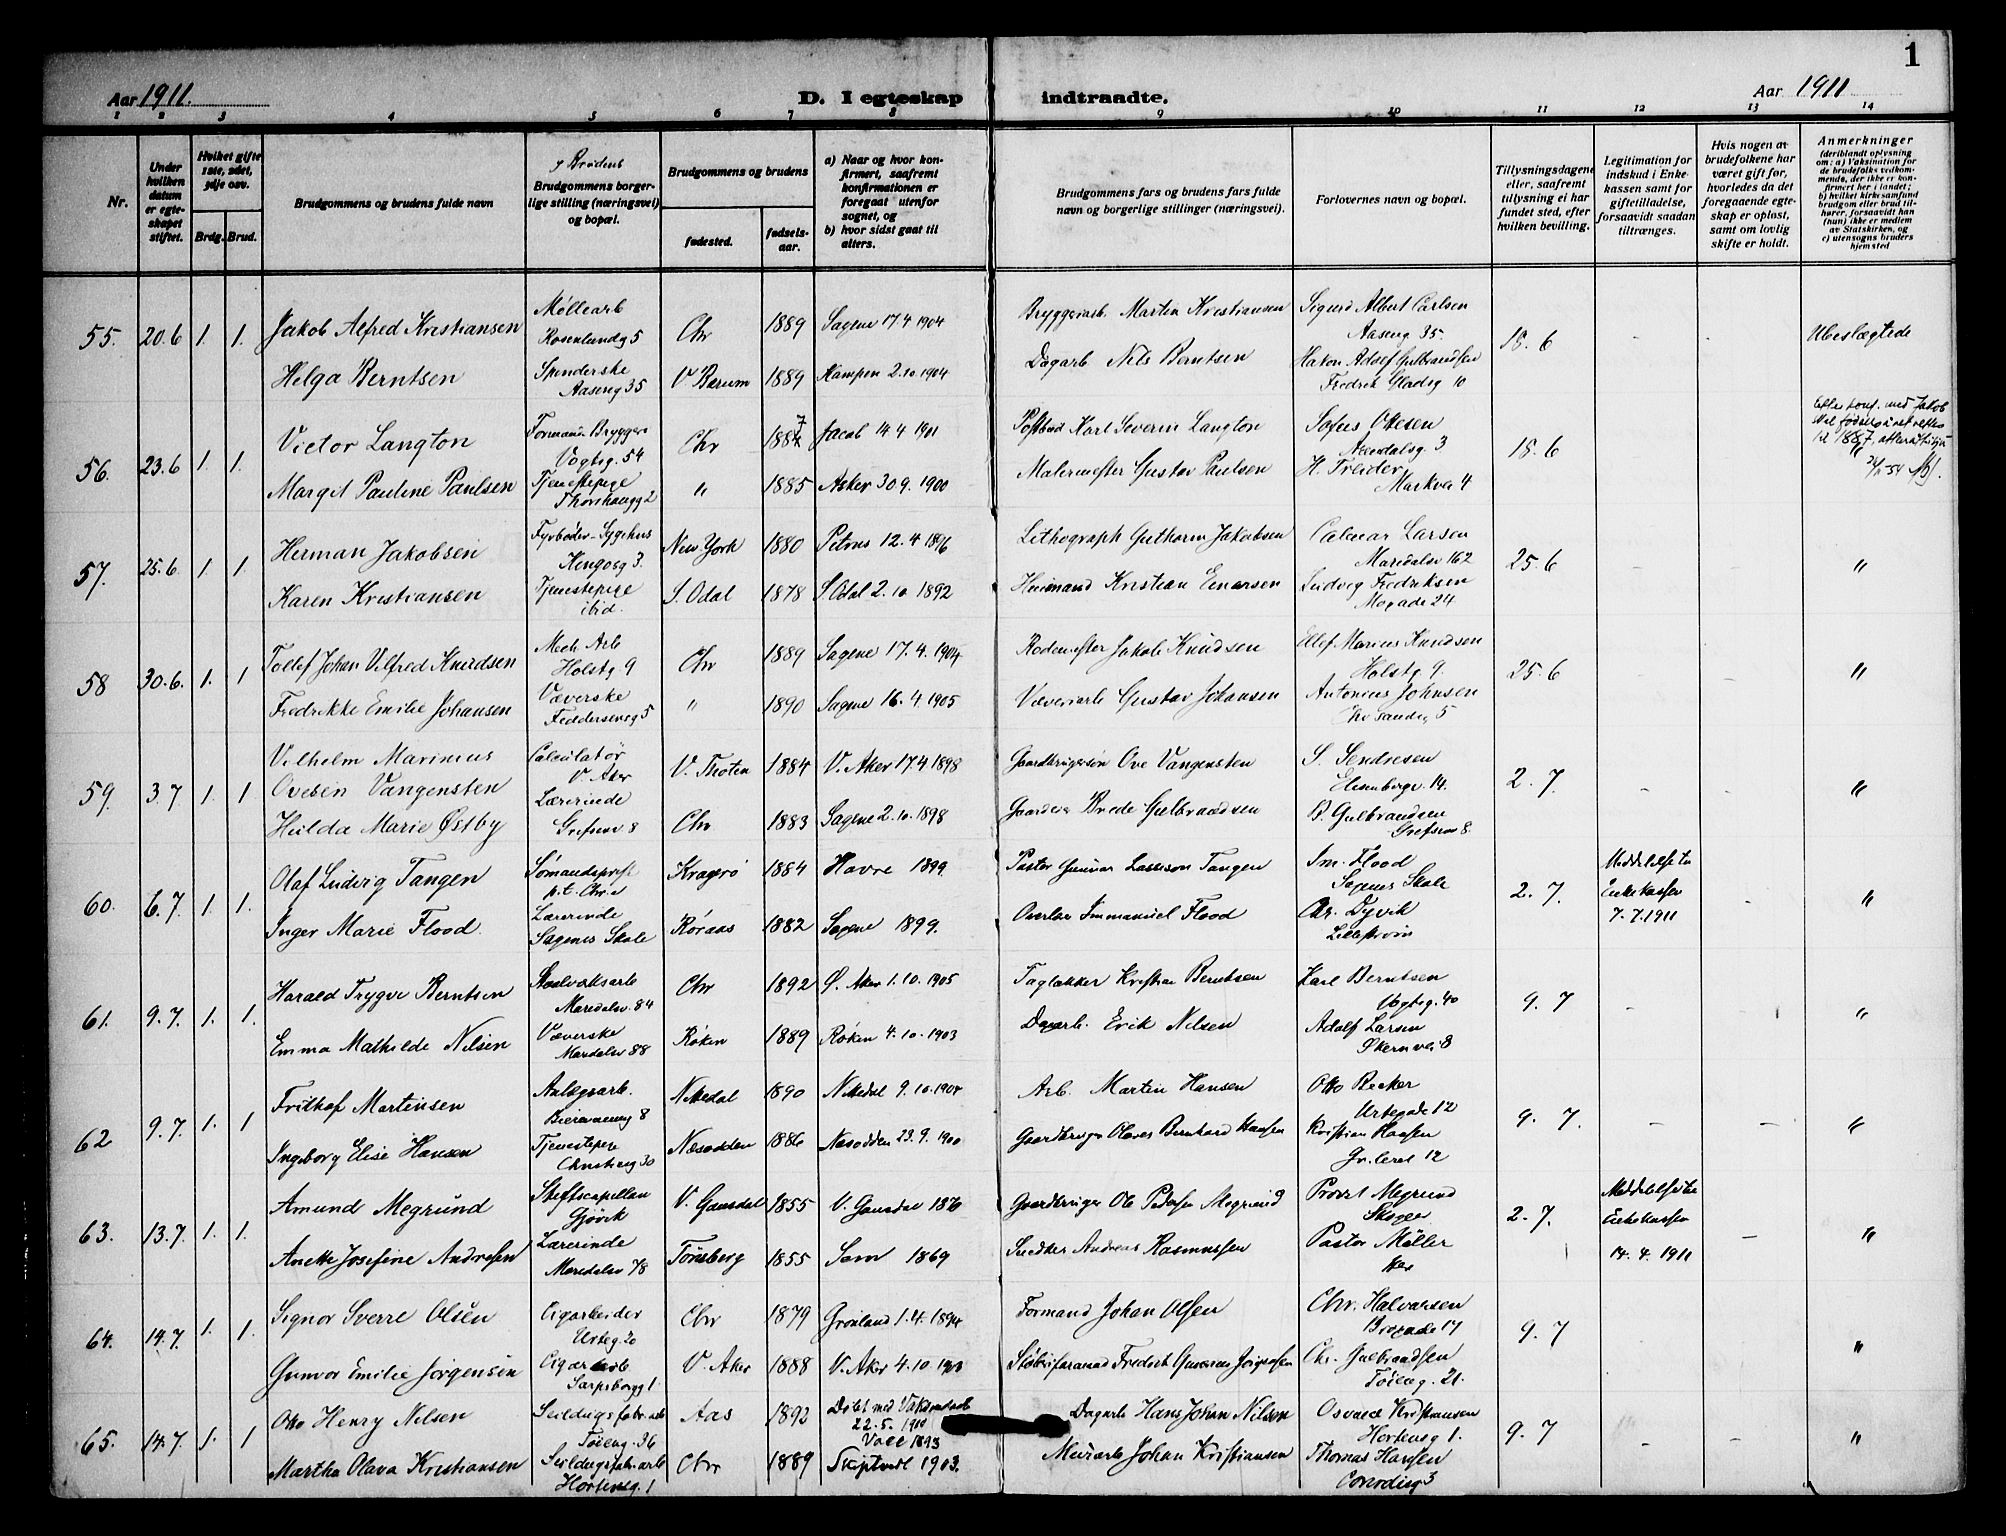 1
Aar 1911. D. I egteskap indtraadte. Aar 1911
1 2 3 4 5 6 7 8 9 10 11 12 13 14
Nr.
Under hvilken datum er egteskapet stiftet.
Hvilket gifte 1ste, 2det, 3dje osv.
Brdg. Brud.
Brudgommens og brudens fulde navn
og Brudens
Brudgommens borgerlige stilling (næringsvei) og bopæl.
Brudgommens og brudens
fødested.
fødselsaar.
a) Naar og hvor konfirmert, saafremt konfirmationen er foregaat utenfor sognet, og
b) hvor sidst gaat til alters.
Brudgommens fars og brudens fars fulde navn og borgerlige stillinger (næringsvei).
Forlovernes navn og bopæl.
Tillysningsdagene eller, saafremt tillysning ei har fundet sted, efter hvilken bevilling.
Legitimation for indskud i Enkekassen samt for giftetilladelse, forsaavidt saadan tiltrænges.
Hvis nogen av brudefolkene har været gift for, hvorledes da det foregaaende egteskap er opløst, samt om lovlig skifte er holdt.
Anmerkninger
(deriblandt oplysning om: a) Vaksination for de brudefolks vedkommende, der ikke er konfirmert her i landet; b) hvilket kirkesamfund brudgom eller brud tilhører, forsaavidt han (hun) ikke er medlem av Statskirken, og c) utensogns bruders hjemsted
55. 20.6 1. 1. Jakob Alfred Kristiansen Møllearb Rosenlundg 5 Chr 1889 Sagene 17.4 1904 Bryggeriarb. Martin Kristiansen Sigurd Albert Carlsen Aaseng 35. 18.6 - - Ubeslægtede
Helga Berntsen Spinderske Aaseng 35 V Bærum 1889 Kampen 2.10.1904 Dagarb Nils Berntsen Hakon Adolf Gulbrandsen Fredrik Gladsg 10
56. 23.6 1. 1. Victor Langton Formand Bryggeri Vogtsg. 54 Chr 1887 Jacob 14 4 1901 Postbud Karl Severin Langton Sofus Ottesen 3 18.6
Efter konf. med Jakob
til 1887,
Margit Pauline Paulsen Tjenestepige Thorshaugg 2 " 1885 Asker 30 9. 1900 Malermester Gustav Paulsen H. Treider Markvei 4
57. 25.6. 1. 1. Herman Jakobsen Fyrbøder-Sygehus Kingosg 3. New York 1880 Petrus 12.4 1896 Lithograph Guthorm Jakobsen Calmar Larsen Maridalsv 162 25.6 - - "
Karen Kristiansen Tjenestepige ibid. S. Odal 1878 S. Odal 2.10.1892 Husmand Kristian Einarsen Ludvig Fredriksen 24
58 30.6. 1. 1 Tollef Johan Vilfred Knudsen Mek Arb Holstg 9 Chr 1889 Sagene 17.4.1904 Rodemester Jakob Knudsen Ollef Marius Knudsen Holstg 9. 25.6 - - "
Fredrikke Emilie Johansen Væverske Feddersensg 5 " 1890 Sagene 16.4.1905 Væveriarb Gustav Johansen Antonius Johnsen 5
59. 3.7 1. 1 Vilhelm Marinius Ovesen Vangensten Calculatør V. Aker V. Thoten 1884 V. Aker 17.4.1898 Gaardbrugersøn Ove Vangensten S. Sendresen Elisenbergv. 14. 2.7. - - "
Hilda Marie Østby Lærerinde Grefsenv 8 Chr 1883 Sagene 2.10.1898 Brede Gulbrandsen B. Gulbrandsen Grefsenv 8.
60. 6.7. 1. 1. Olaf Ludvig Tangen Sømandsprest p.t. Chr.a Kragerø 1884 Havre 1899 Pastor Gunnar Tangen Im. Flood Sagenes Skole 2.7. Meddelelse til Enkekassen 7.7.1911 - "
Inger Marie Flood. Lærerinde Sagenes Skole Røraas 1882 Sagene 1899. Overlær Immanuel Flood Chr. Dyvik Lillestrøm
61. 9.7. 1. 1. Harald Trygve Berntsen Maridalsv. 84 Chr 1892 Ø. Aker 1.10.1905 Taglækker Kristian Berntsen Karl Berntsen Vogtsg. 40 9.7 - - "
Emma Mathilde Nilsen Væverske Maridalsv 88 Røken 1889 Røken 4.10.1903 Dagarb. Erik Nilsen Adolf Larsen 8
62 9.7. 1. 1 Fritkof Martinsen Anlægsarb. 8 Nittedal 1890 Nittedal 9.10.1904 Arb. Martin Hansen Otto Becker Urtegade 12 9.7. - - "
Ingeborg Elise Hansen Tjenestepige Christieng 30 Næsodden 1886 Næsodden 23.9.1900 Gaardbruger Olaves Bernhard Hansen Kristian Hansen Gr.leret 12
63. 13.7. 1. 1. Amund Megrund Stiftscapellan Gjøvik V. Gausdal 1855 V. Gausdal 1870 Gaardbruger Ole Pedersen Megrund Provst Megrund Skoger 2.7. Meddelelse til Enkekassen 14.4.1911 - "
Anette Josefine Andresen Lærerinde Maridalsv 78 Tønsberg 1855 Sem 1869 Snedker Andreas Rasmussen Pastor Møller Her
64. 14.7. 1. 1. Signor Sverre Olsen Cigarbeider Urteg. 20 Chr 1879 Grønland 1.4.1894 Formand Johan Olsen Chr. Halvorsen Brogade 17 9.7 "
Gunvor Emilie Jørgensen Cigararb Sarpsborgg 1. V. Aker 1888 V. Aker 4.10 1903 Chr. Gulbrandsen Tøieng. 21.
65. 14.7. 1. 1 Otto Henry Nilsen Seildugsfabr.arb Tøieng. 36 Aas 1892 Døbt med 22.5.1910 1893 Dagarb Hans Johan Nilsen Osvald Kristiansen Hortensg 1. 9.7 - - "
Martha Olava Kristiansen Seildugsfabr.arb Hortensg. 1 Chr 1889 Skiptvedt 1903. Murarb Johan Kristiansen Thomas Hansen 3